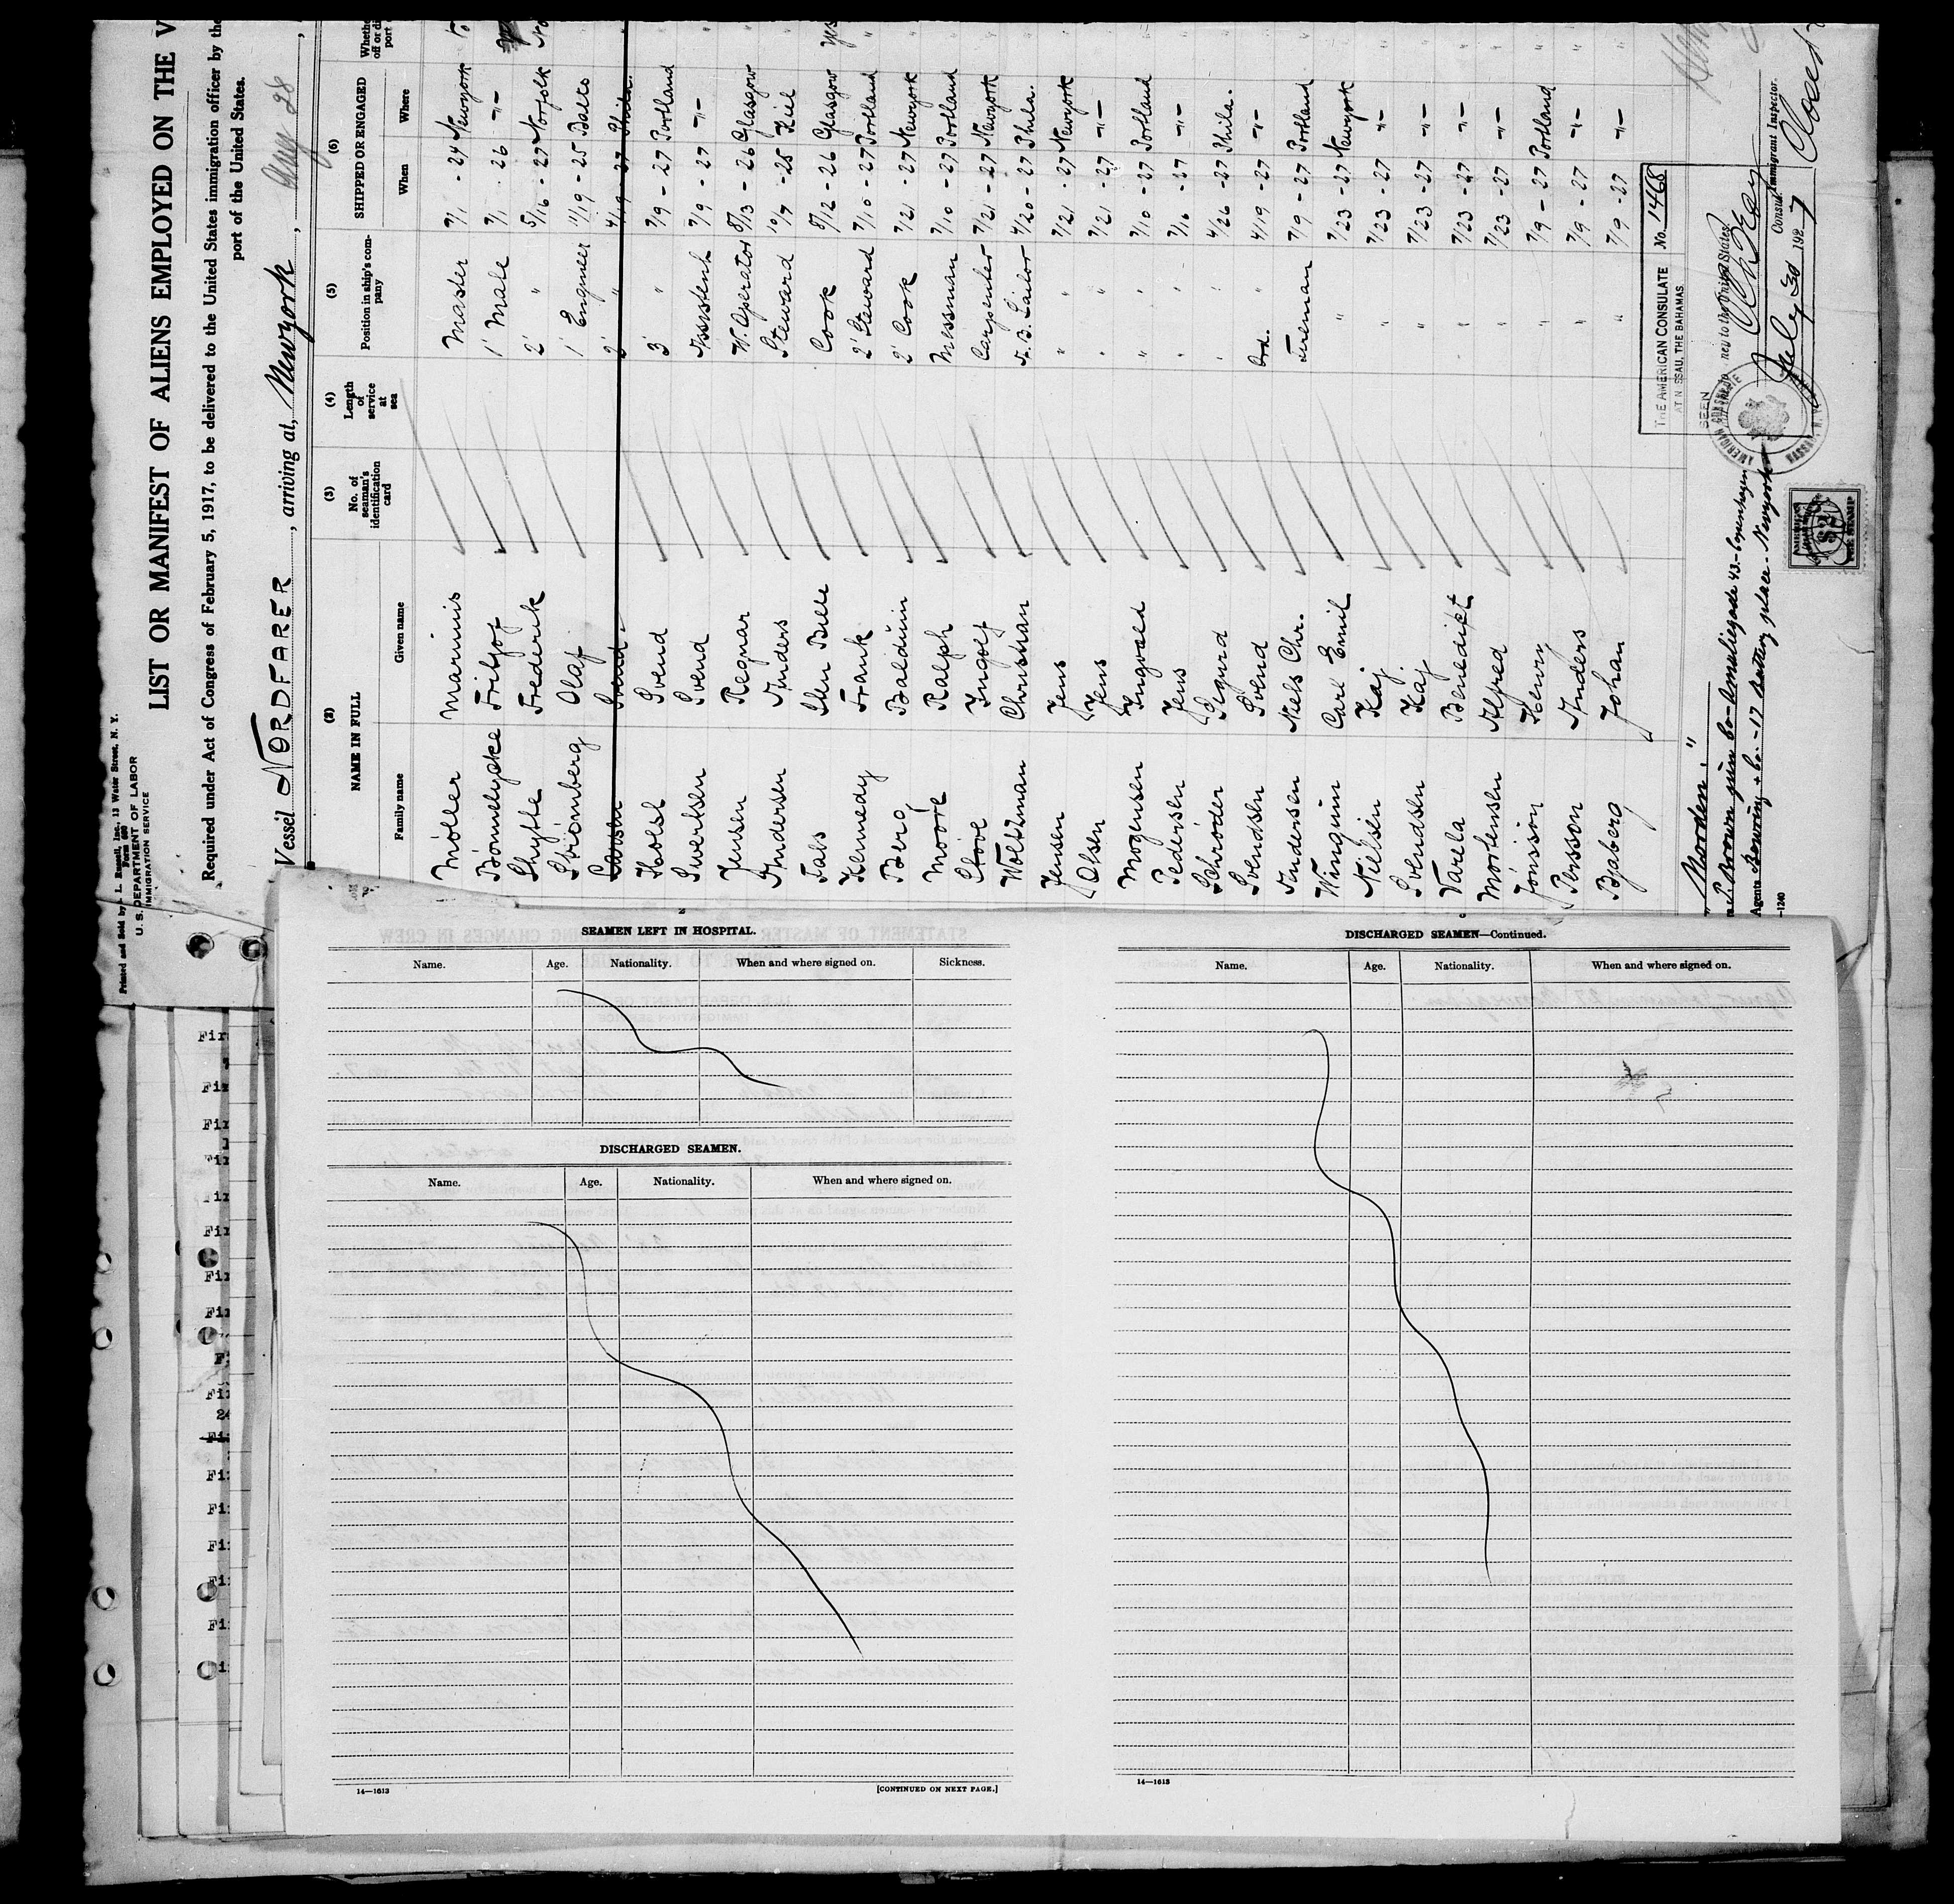 Printed and Sold by L. Russell, Inc., 13 Water Street, N. Y.
Form 680
U. S. DEPARTMENT OF LABOR
IMMIGRATION SERVICE
LIST OR MANIFEST OF ALIENS EMPLOYED ON THE V
Required under Act of Congress of February 5, 1917, to be delivered to the United States immigration officer by the
port of the United States.
Vessel NORDFARER, arriving at, Newyork, 28
(2) (3) (4) (5) (6)
NAME IN FULL No. of seaman's identification card Length of service at sea Position in ship's company SHIPPED OR ENGAGED Whethe off or di port
Family name Given name When Where
Möller Marinus Master 7/1 - 24 Newyork
Bonnelycke Fritjof 1' Mate 7/1 - 26 -"-
Thytte Frederik 2' " 5/16 - 27 Norfolk
Strömberg Olaf 1' Engineer 11/19 - 25 Balto
Svend 2' " 4/19 - 27 Phila.
Holst Svend 3' " 7/9 - 27 Portland
Swertsen Svend Assistent 7/9 - 27 -"-
Jensen Regnar W. Operator 8/13 - 26 Glasgow
Andersen Anders Steward 10/7 - 25 Kiel
Tabs Sten Bille Cook 8/12 - 26 Glasgow yes
Kennedy Frank 2' Steward 7/10 - 27 Portland "
Berg Balduin 2' Cook 7/21 - 27 Newyork "
Moore Ralph Messman 7/10 - 27 Portland "
Stove Ingolf Carpenter 7/21 - 27 Newyork "
Woltzman Christian A. B. Sailor 4/20 - 27 Phila. "
Jensen Jens " 7/21 - 27 Newyork "
Olsen Jens " 7/21 - 27 -"- "
Mogensen Ingvald " 7/10 - 27 Portland "
Pedersen Jens " 7/16 - 27 -"- "
Schröder Sigurd " 4/26 - 27 Phila. "
Svendsen Svend Ord. " 4/19 - 27 -"- "
Andersen Niels Chr. Fireman 7/9 - 27 Portland "
Wingum Carl Emil " 7/23 - 27 Newyork "
Nielsen Kaj " 7/23 - 27 -"- "
Svendsen Kaj " 7/23 - 27 -"- "
Varela Benedikt " 7/23 - 27 -"- "
Mortensen Alfred " 7/23 - 27 -"- "
Jönsson Henry " 7/9 - 27 Portland "
Persson Anders " 7/9 - 27 -"- "
Bjaberg Johan " 7/9 - 27 -"- "
THE AMERICAN CONSULATE No. 1468
AT NASSAU, THE BAHAMAS
SEEN
July 30 1927
Consul.
Immigrant Inspector.
Closed
"Norden"
Amaliegade 43 - Copenhagen
Agents Bowring & Co. - 17 Battery place - Newyork
-1240
AMERICAN
$2
FEE STAMP
SEAMEN LEFT IN HOSPITAL.
Name. Age. Nationality. When and where signed on. Sickness.
DISCHARGED SEAMEN.
Name. Age. Nationality. When and where signed on.
14—1613 [CONTINUED ON NEXT PAGE.]
DISCHARGED SEAMEN—Continued.
Name. Age. Nationality. When and where signed on.
14—1613